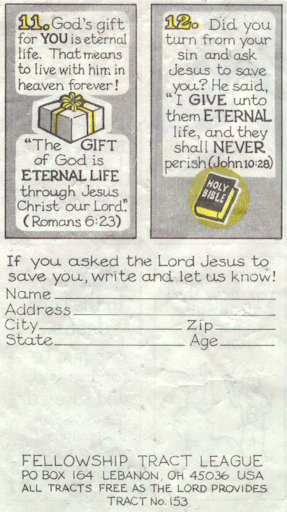 11. God's gift
for YOU is eternal
life. That means
to live with him in
heaven forever!
"The GIFT
of God is
ETERNAL LIFE
through Jesus
Christ our Lord."
(Romans 6:23)
12. Did you
turn from your
sin and ask
Jesus to save
you? He said,
"I GIVE unto
them ETERNAL
life, and they
shall NEVER
perish (John 10:28)
HOLY
BIBLE
If you asked the Lord Jesus to
save you, write and let us know!
Name
Address
City Zip
State Age
FELLOWSHIP TRACT LEAGUE
PO BOX 164 LEBANON, OH 45036 USA
ALL TRACTS FREE AS THE LORD PROVIDES
TRACT No. 153